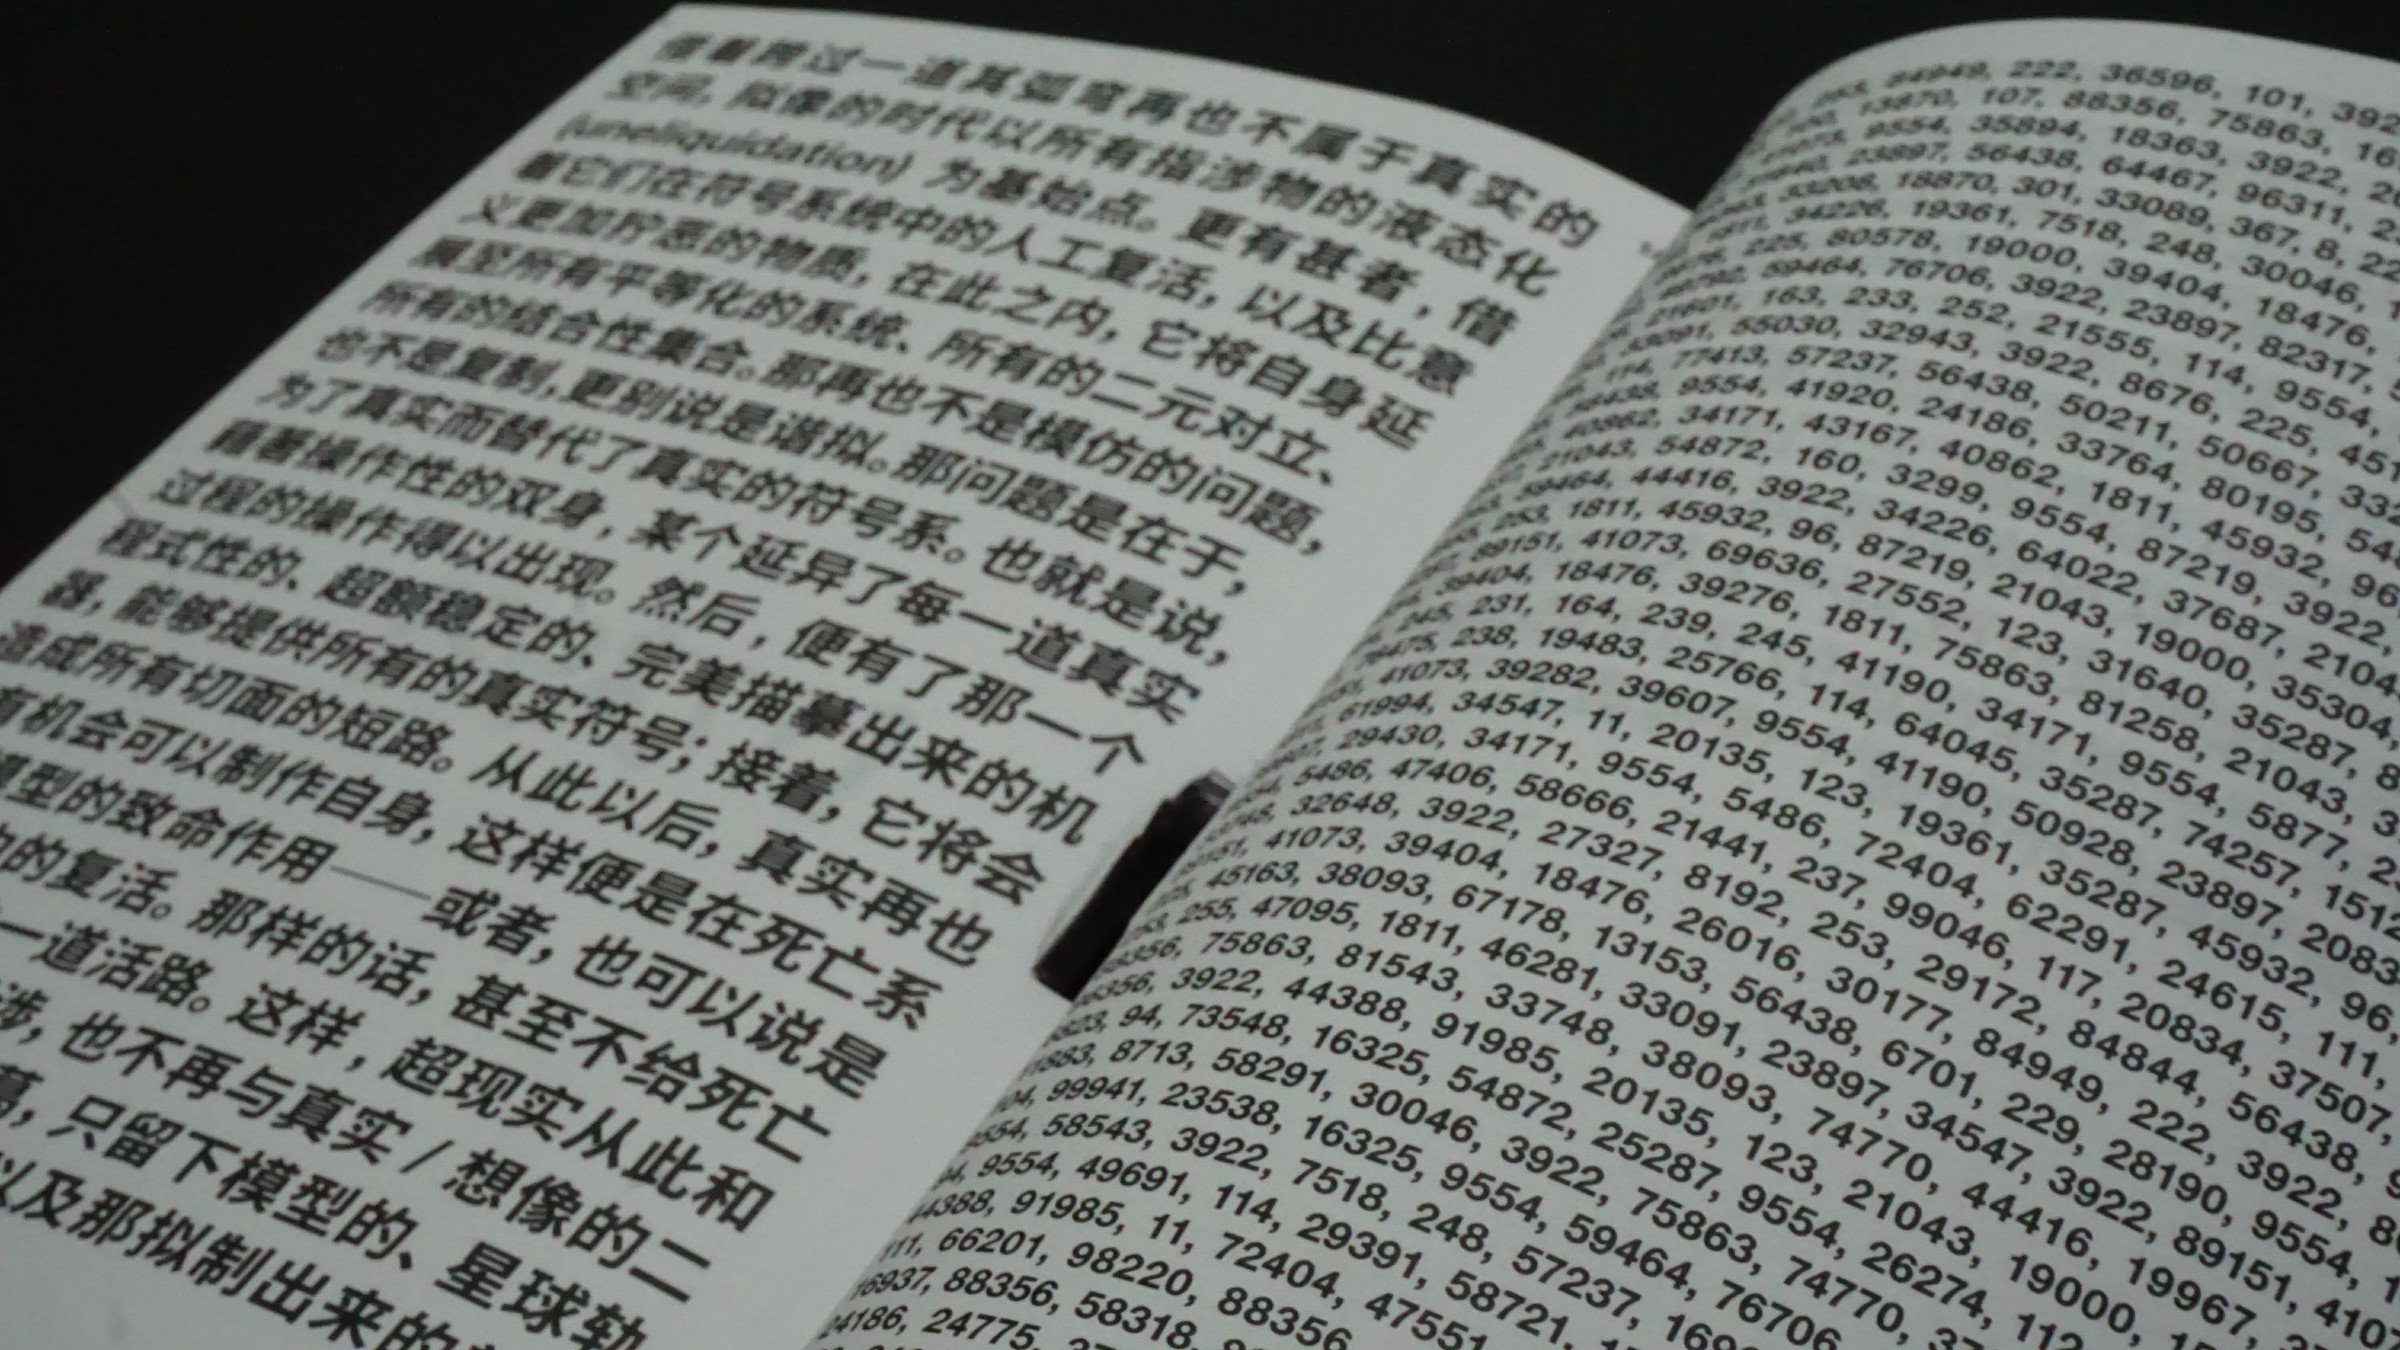 借着跨过一道其弧弯再也不属于真实的
空间，拟像的时代以所有指涉物的液态化
(uneliquidation) 为基始点。更有甚者，借
着它们在符号系统中的人工复活，以及比意
义更加贮恶的物质，在此之内，它将自身延
展至所有平等化的系统、所有的二元对立、
所有的结合性集合。那再也不是模仿的问题，
也不是复制，更别说是谐拟。那问题是在于，
为了真实而替代了真实的符号系。也就是说，
藉着操作性的双身，某个延异了每一道真实
过程的操作得以出现。然后，便有了那一个
程式性的、超额稳定的、完美描摹出来的机
器，能够提供所有的真实符号；接着，它将会
造成所有切面的短路。从此以后，真实再也
有机会可以制作自身，这样便是在死亡系
模型的致命作用——或者，也可以说是
的复活。那样的话，甚至不给死亡
一道活路。这样，超现实从此和
涉，也不再与真实 / 想像的二
，只留下模型的、星球轨
以及那拟制出来的
84949, 222, 36596, 101,
13870, 107, 88356, 75863,
9554, 35894, 18363, 3922,
23897, 56438, 64467, 96311,
53208, 18870, 301, 33089, 367, 8,
34226, 19361, 7518, 248, 30046,
225, 80578, 19000, 39404, 18476,
59464, 76706, 3922, 23897, 82317,
21601, 163, 233, 252, 21555, 114, 9554,
55030, 32943, 3922, 8676, 225,
114, 77413, 57237, 56438, 50211, 50667,
9554, 41920, 24186, 33764, 80195,
40862, 34171, 43167, 40862, 1811, 45932, 96
21043, 54872, 160, 3299, 9554, 87219, 3922,
59464, 44416, 3922, 34226, 64022, 37687,
253, 1811, 45932, 96, 87219, 21043, 19000, 35304,
89151, 41073, 69636, 27552, 123, 31640, 35287,
39404, 18476, 39276, 1811, 75863, 81258, 21043,
245, 231, 164, 239, 245, 41190, 34171, 9554, 5877,
76475, 238, 19483, 25766, 114, 64045, 35287, 74257,
41073, 39282, 39607, 9554, 41190, 50928, 23897,
61994, 34547, 11, 20135, 123, 19361, 35287, 45932, 96,
29430, 34171, 9554, 5486, 72404, 62291, 24615, 111,
5486, 47406, 58666, 21441, 237, 99046, 117, 20834, 37507,
32648, 3922, 27327, 8192, 253, 29172, 84844, 56438,
41073, 39404, 18476, 26016, 30177, 84949, 222, 3922,
45163, 38093, 67178, 13153, 56438, 6701, 229, 28190, 9554,
255, 47095, 1811, 46281, 33091, 23897, 34547, 3922, 89151,
75863, 81543, 33748, 38093, 74770, 44416, 19967,
3922, 44388, 91985, 20135, 123, 21043, 19000,
94, 73548, 16325, 54872, 25287, 9554, 26274, 112
8713, 58291, 30046, 3922, 75863, 74770,
99941, 23538, 16325, 9554, 59464, 76706
58543, 3922, 7518, 248, 57237,
9554, 49691, 114, 29391, 58721,
91985, 11, 72404, 47551
66201, 98220, 88356
88356, 58318,
24775,